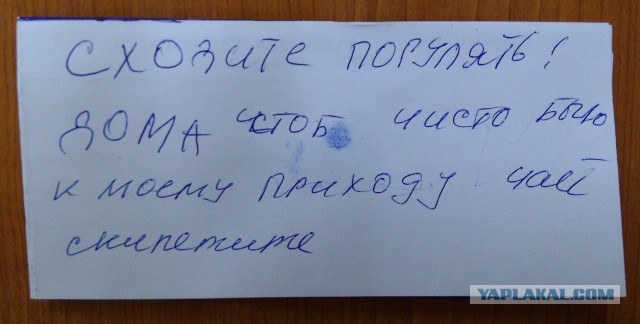 СХОДИТЕ ПОГУЛЯТЬ!
ДОМА ЧТОБ ЧИСТО БЫЛО
К МОЕМУ ПРИХОДУ ЧАЙ
скипятите
YAPLAKAL.COM